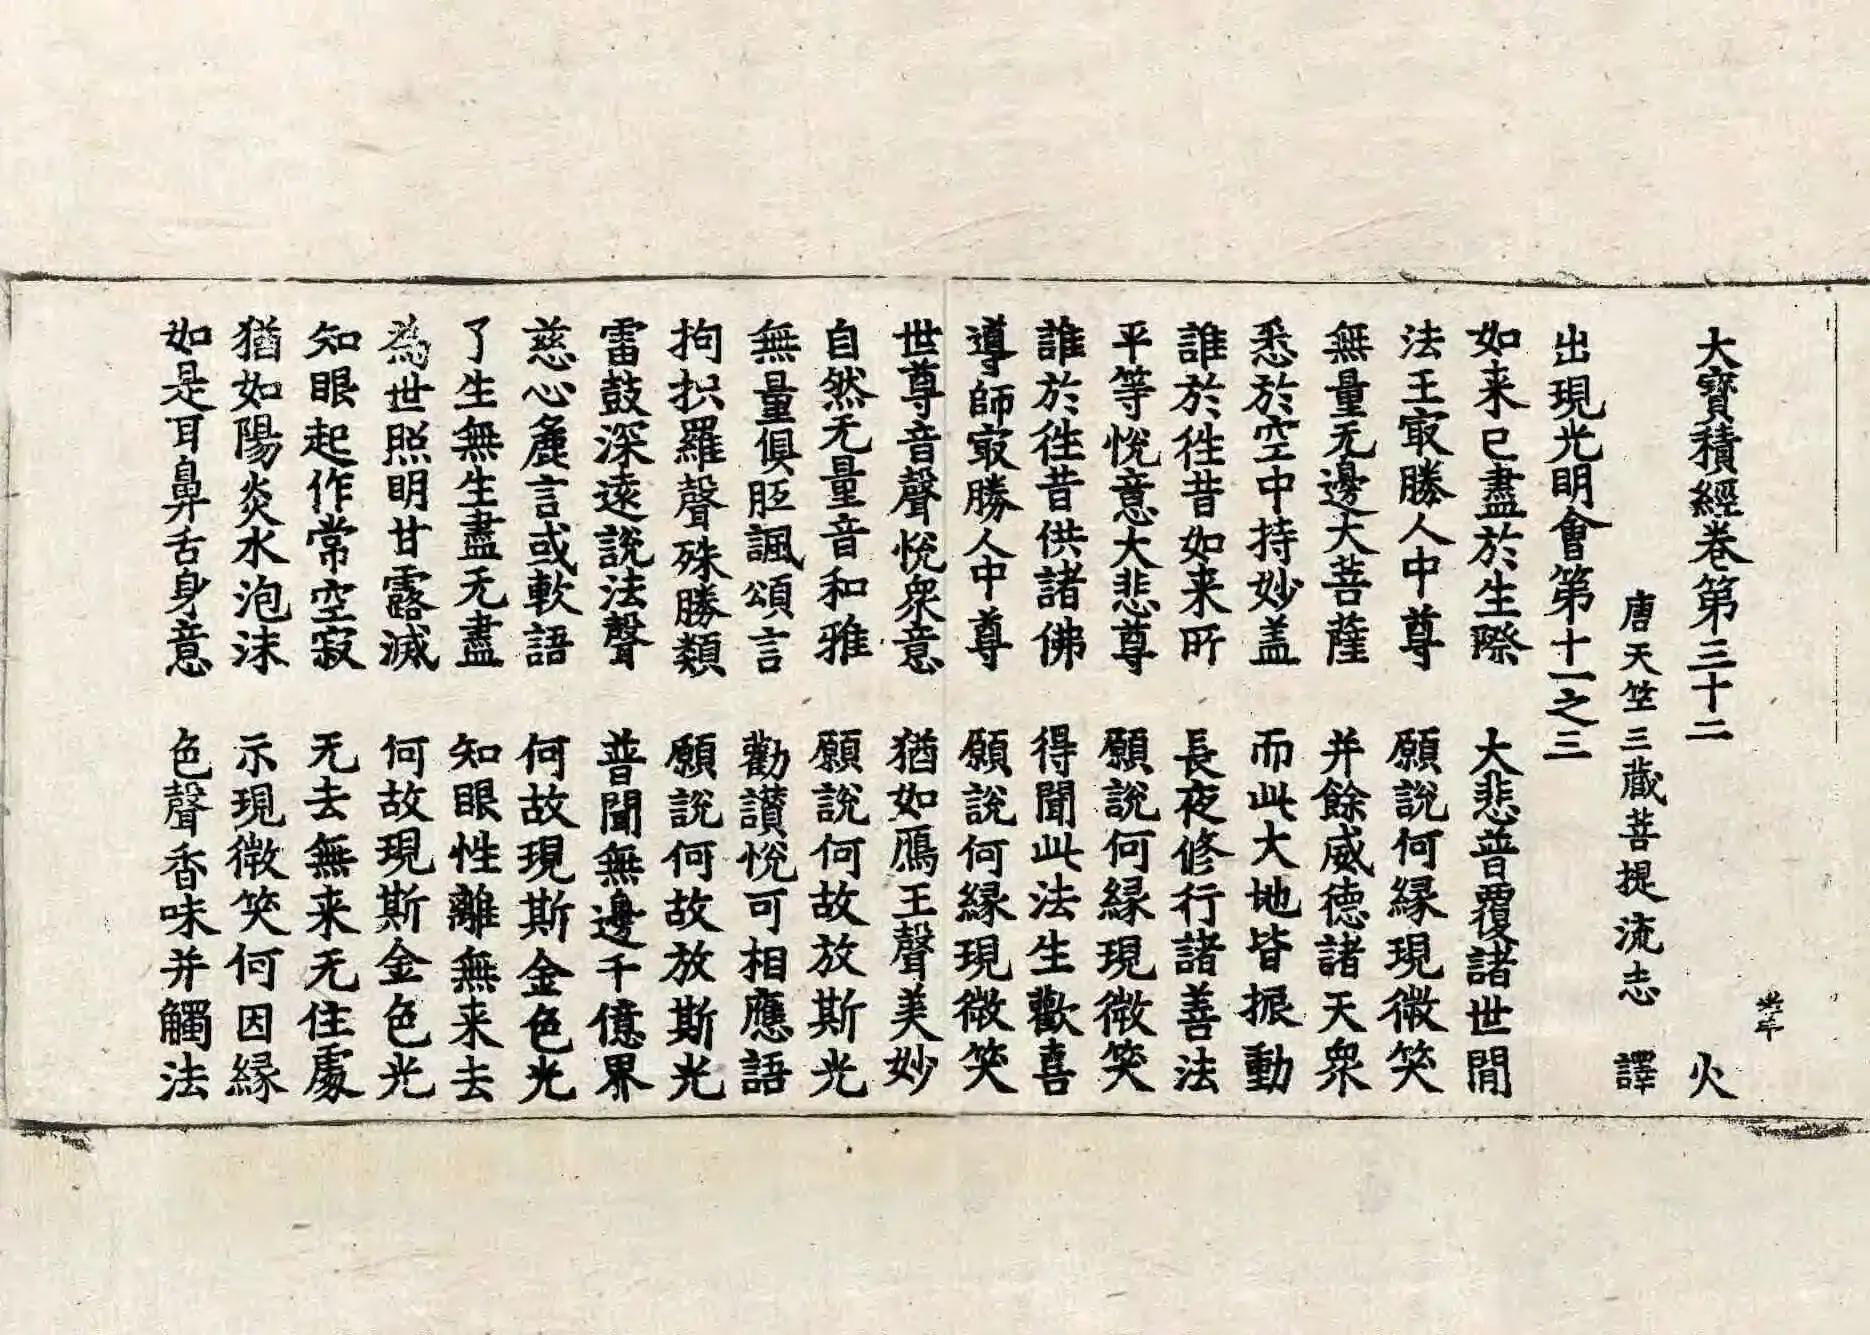 大寳積經卷第三十二 火
唐天竺三藏菩提流志 譯
出現光明會第十一之三
如来已盡於生際 大悲普覆諸世間
法王㝡勝人中尊 願說何縁現微笑
無量无邊大菩薩 并餘威德諸天衆
悉於空中持妙盖 而此大地皆振動
誰於徃昔如来所 長夜修行諸善法
平等悅意大悲尊 願說何縁現微笑
誰於徃昔供諸佛 得聞此法生歡喜
導師㝡勝人中尊 願說何縁現微笑
世尊音聲悅衆意 猶如鴈王聲美妙
自然无量音和雅 願說何故放斯光
無量俱胝諷頌言 勸讃悅可相應語
拘抧羅聲殊勝類 願說何故放斯光
雷鼓深遠說法聲 普聞無邊千億界
慈心麁言或軟語 何故現斯金色光
了生無生盡无盡 知眼性離無来去
為世照明甘露滅 何故現斯金色光
知眼起作常空寂 无去無来无住處
猶如陽炎水泡沫 示現微笑何因縁
如是耳鼻舌身意 色聲香味并觸法